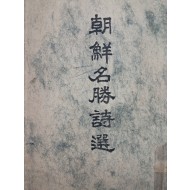 朝鮮名勝詩選